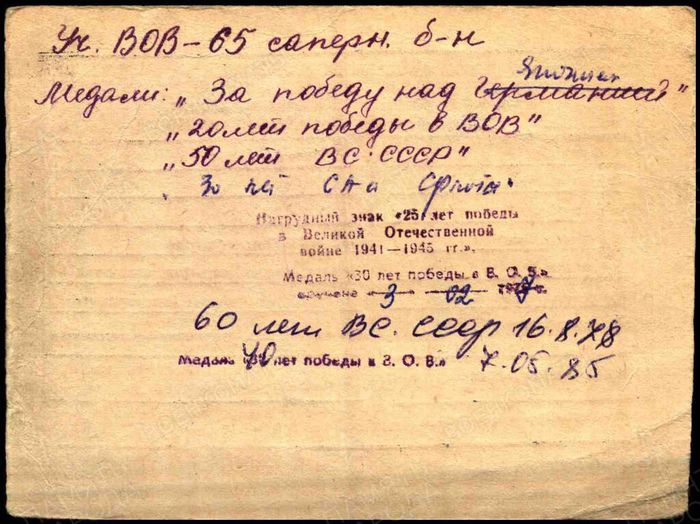 Уч. ВОВ-65 саперн. б-н
Японией
Медали: „За победу над Германией"
„20 лет победы в ВОВ"
„50 лет ВС СССР"
„30 лет СА и Флота"
Нагрудный знак «25 лет победы
в Великой Отечественной
войне 1941—1945 гг.».
Медаль «30 лет победы в В. О. В.»
вручена «3 02 г.
60 лет ВС. СССР 16.8.78
Медаль «40 лет победы в В. О. В.» 7.05.85